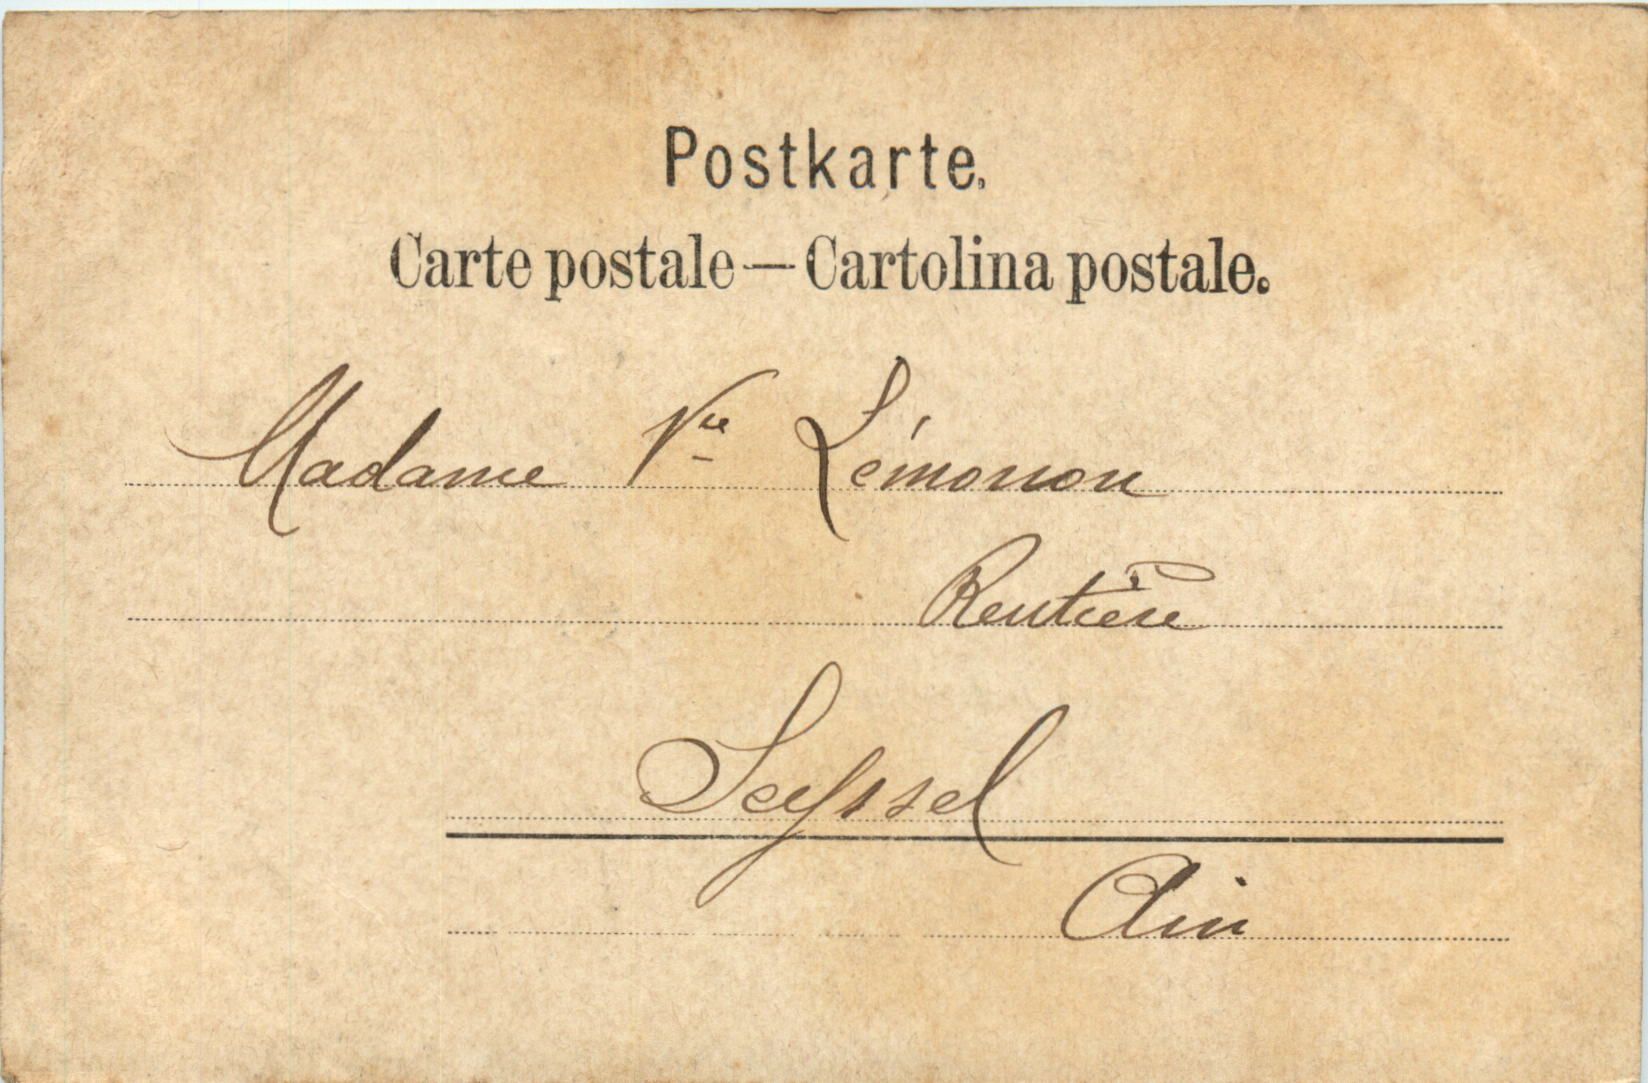 Postkarte.
Carte postale — Cartolina postale.
Madame Vve Lémonon
Rentière
Seyssel
Ain